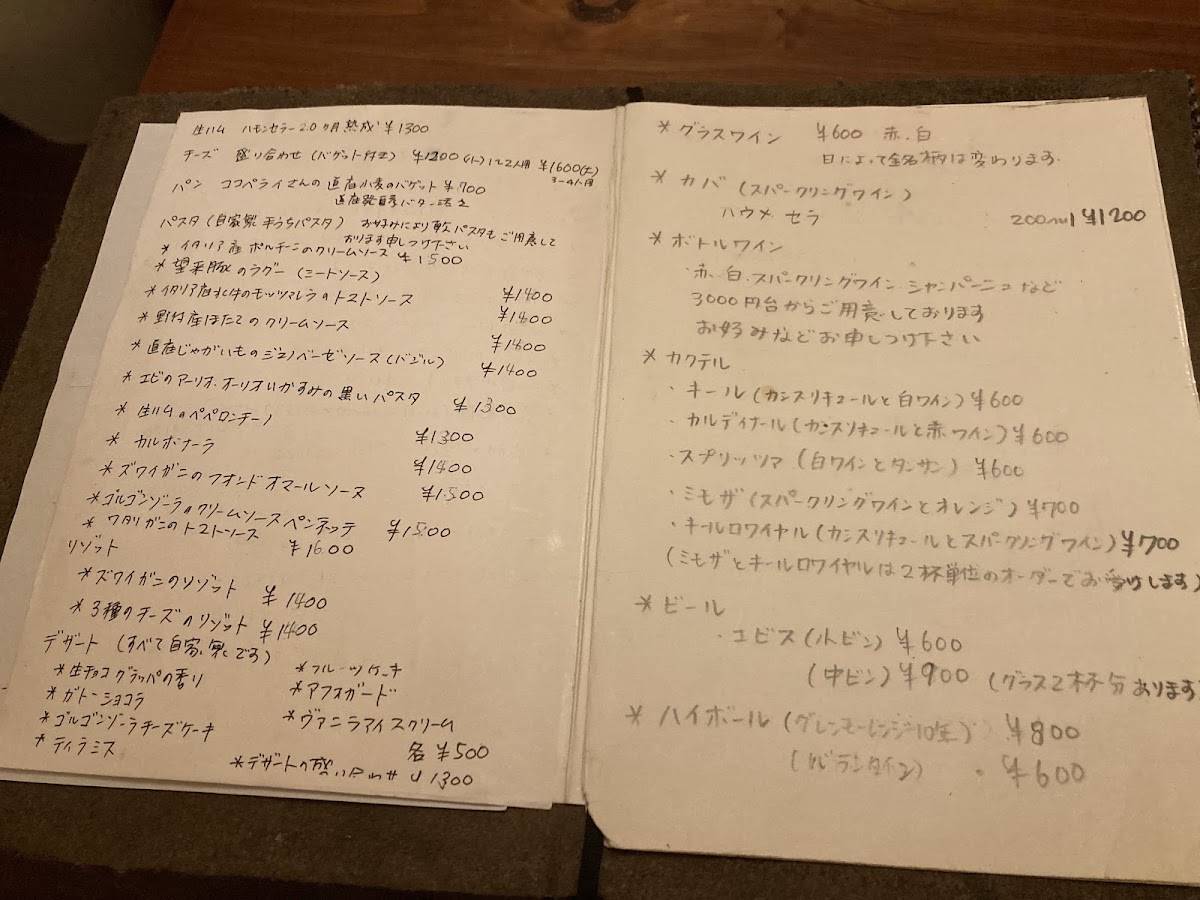 生ハム ハモンセラー20ヶ月熟成 ¥1300
チーズ 盛り合わせ(バゲット付き) ¥1200(小)1〜2人用 ¥1600(大)
3〜4人用
パン ココペライさんの道産小麦のバゲット ¥700
道産発酵バター
パスタ(自家製手うちパスタ) お好みにより乾パスタもご用意して
おります申しつけ下さい
*イタリア産ポルチーニのクリームソース ¥1500
*望来豚のラグー(ミートソース) ¥1400
*イタリア産水牛のモッツァレラのトマトソース ¥1400
*野付産ほたてのクリームソース ¥1400
*道産じゃがいものジェノベーゼソース(バジル) ¥1400
*エビのアーリオ・オーリオいかすみの黒いパスタ ¥1300
*生ハムのペペロンチーノ ¥1300
*カルボナーラ ¥1400
*ズワイガニのフォンドオマールソース ¥1500
*ゴルゴンゾーラのクリームソースペンネッテ ¥1500
*ワタリガニのトマトソース ¥1600
リゾット
*ズワイガニのリゾット ¥1400
*3種のチーズのリゾット ¥1400
デザート(すべて自家製です)
*生チョコグラッパの香り
*ガトーショコラ
*ゴルゴンゾーラチーズケーキ
*ティラミス
*フルーツケーキ
*アフォガード
*ヴァニラアイスクリーム
各¥500
*デザートの盛り合わせ ¥1300
*グラスワイン ¥600 赤、白
日によって銘柄は変わります
*カバ(スパークリングワイン)
ハウメ セラ 200ml ¥1200
*ボトルワイン
・赤、白、スパークリングワイン シャンパーニュなど
3000円台からご用意しております
お好みなどお申しつけ下さい
*カクテル
・キール(カシスリキュールと白ワイン)¥600
・カルディナール(カシスリキュールと赤ワイン)¥600
・スプリッツァ(白ワインとタンサン)¥600
・ミモザ(スパークリングワインとオレンジ)¥700
・キールロワイヤル(カシスリキュールとスパークリングワイン)¥700
(ミモザとキールロワイヤルは2杯単位のオーダーでお受けします)
*ビール
・エビス(小ビン)¥600
(中ビン)¥900(グラス2杯分あります
*ハイボール(グレンモーレンジー10年)¥800
(バランタイン)・¥600